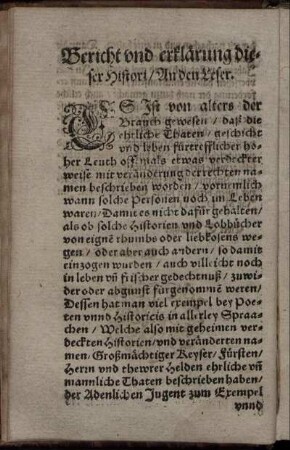 Bericht vnd erklärung die-
ser Histori / An den Leser.
ES Ist von alters der
Brauch gewesen / daß die
ehrliche Thaten / geschicht
vnd leben fürtrefflicher ho-
her Leuth offtmals etwas verdeckter
weise mit veränderung der rechten na-
men beschrieben worden / vornemlich
wann solche Personen noch im Leben
waren / Damit es nicht dafür gehalten /
als ob solche Historien vnd Lobbücher
von eignē rhumbs oder liebkosens we-
gen / oder aber auch andern / so damit
einzogen wurden / auch villeicht noch
in leben vñ frischer gedechtnuß / zuwi-
der oder abgunst fürgenommē weren /
Dessen hat man viel exempel bey Poe-
ten vnnd Historicis in allerley Spraa-
chen / Welche also mit geheimen ver-
deckten Historien / vnd veränderten na-
men / Großmächtiger Keyser / Fürsten /
Herrn vnd thewrer Helden ehrliche vñ
mannliche Thaten beschrieben haben /
der Adenlichen Jugent zum Exempel
vnnd